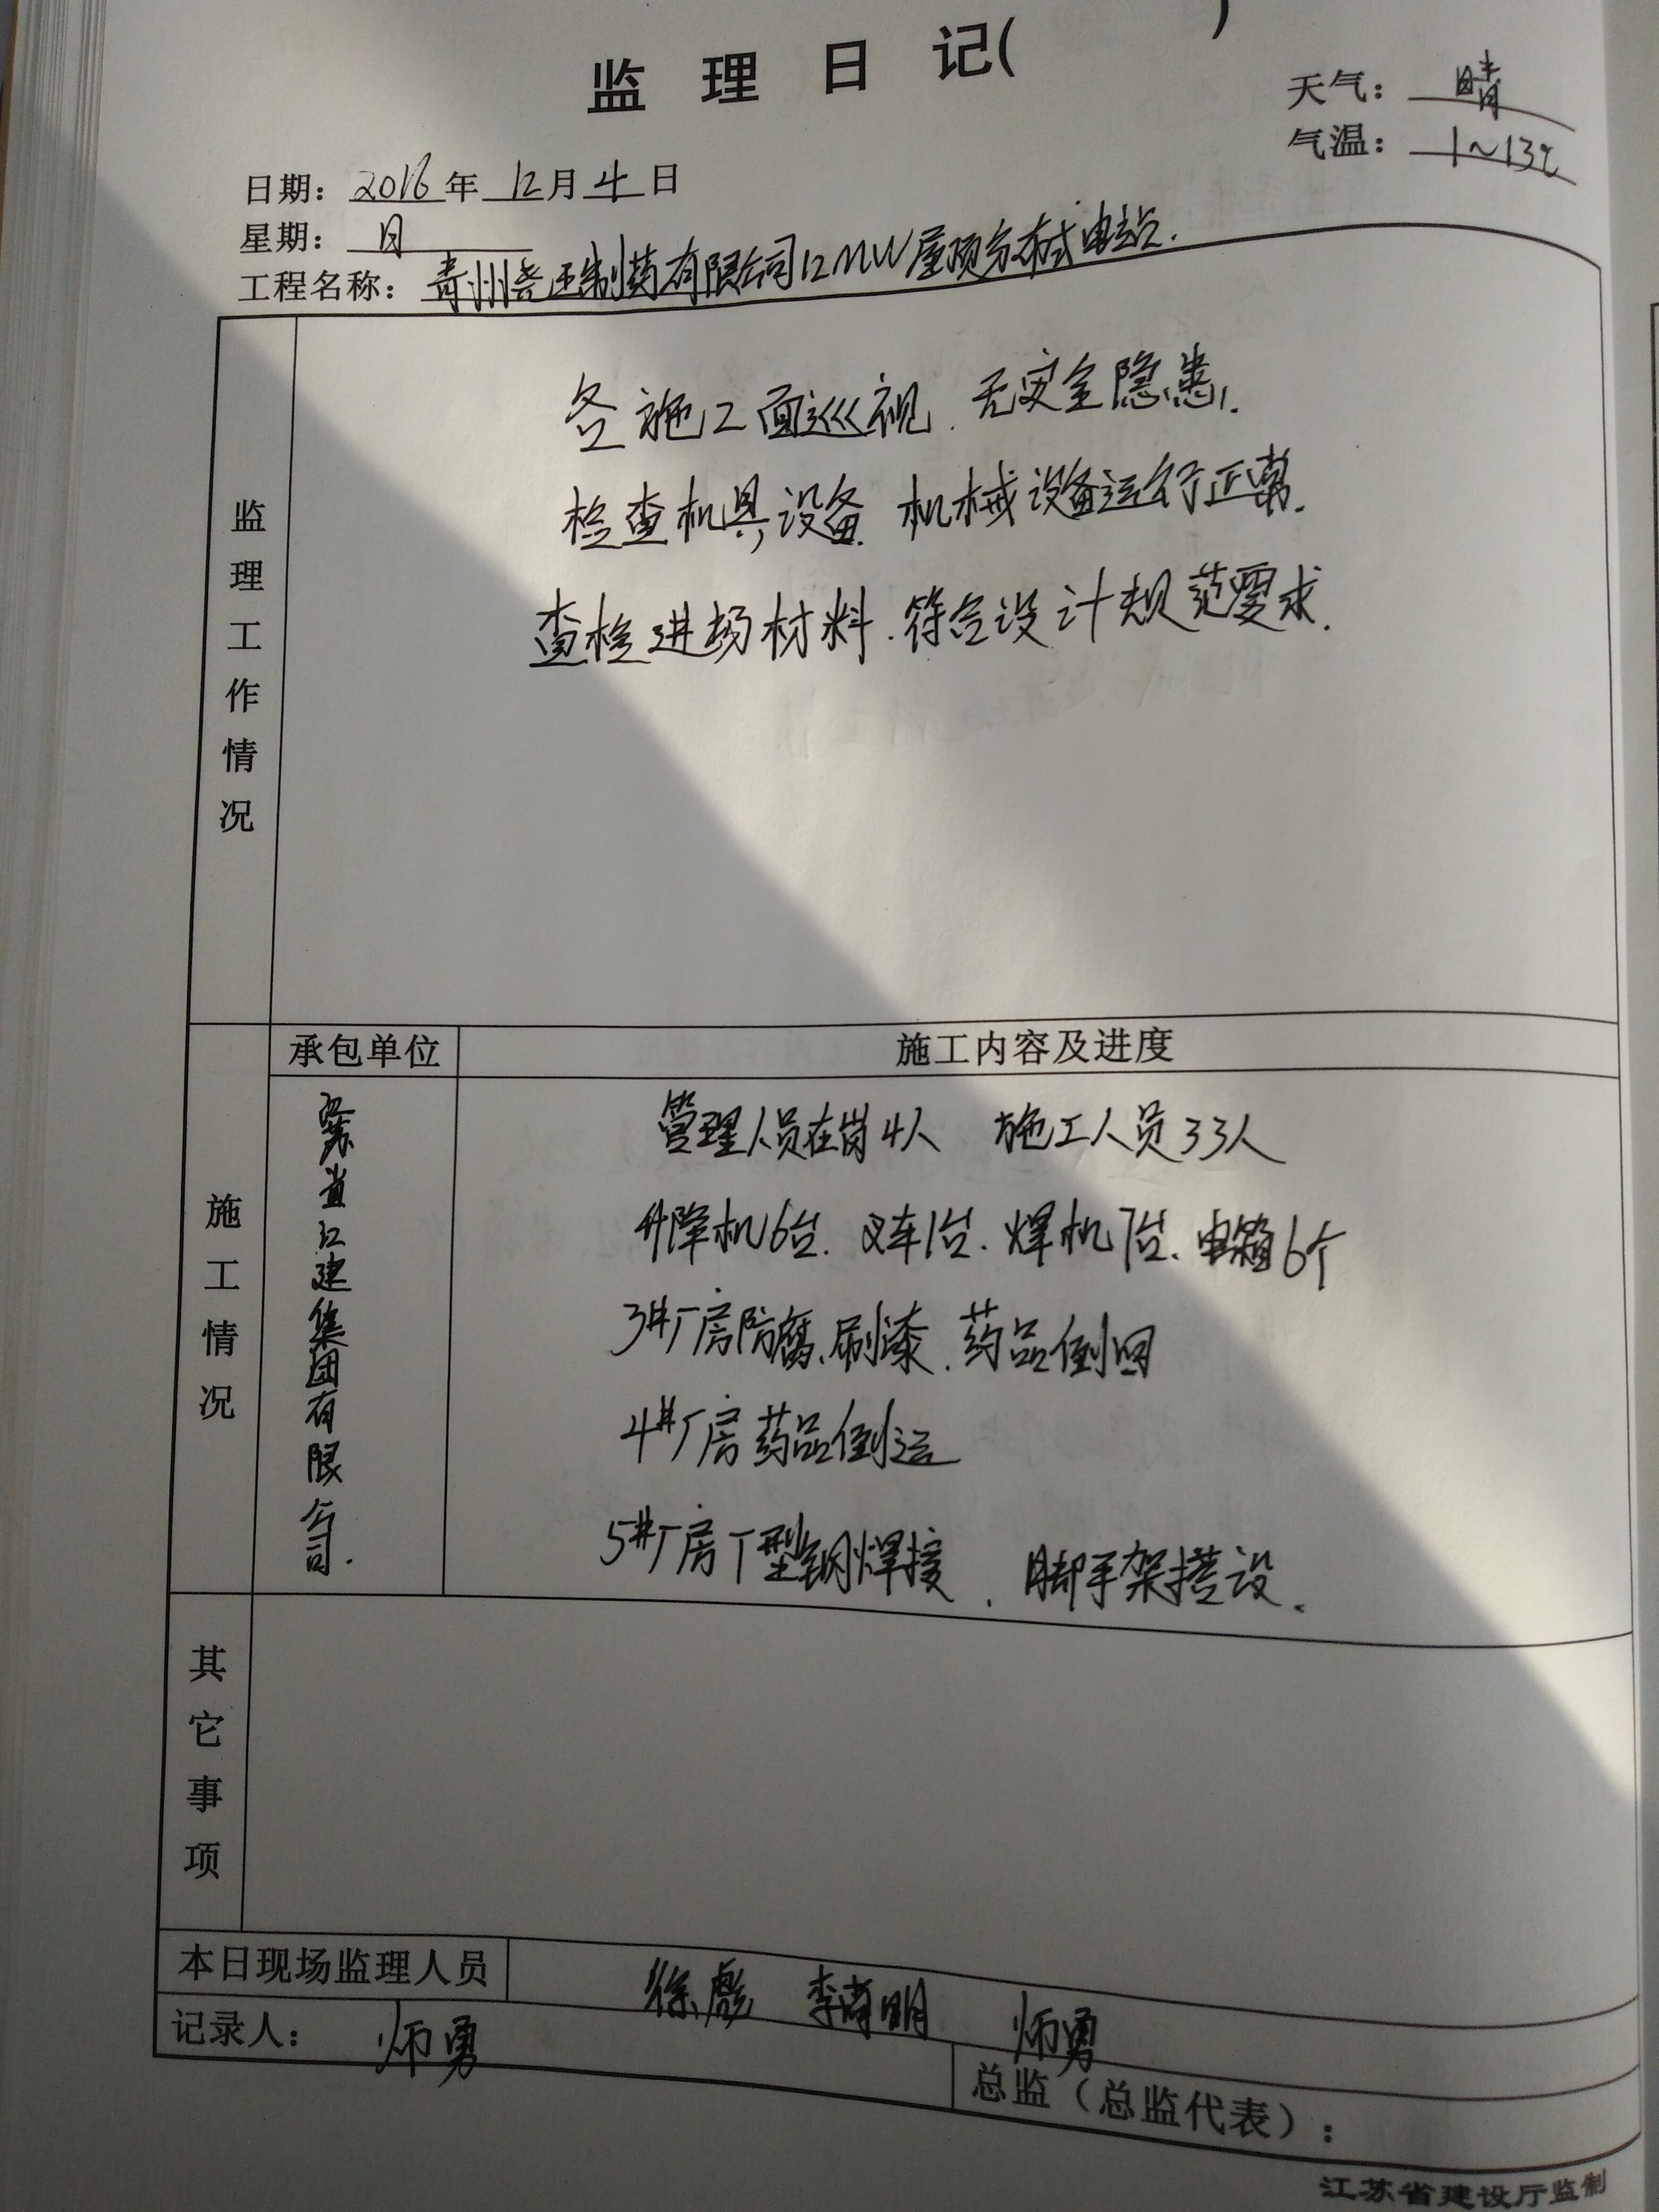 监理日记(        )
天气：晴
气温：1~13℃
日期：2016年12月4日
星期：日
工程名称：青州尧王制药有限公司12MW屋顶分布式电站.
监理工作情况
各施工面巡视.无安全隐患.
检查机具设备.机械设备运行正常.
查检进场材料.符合设计规范要求.
施工情况
承包单位
施工内容及进度
江苏省江建集团有限公司.
管理人员在岗4人 施工人员33人
升降机6台.叉车1台.焊机7台.电箱6个
3#厂房防腐、刷漆.药品倒回
4#厂房药品倒运
5#厂房T型钢焊接、脚手架搭设。
其它事项
本日现场监理人员
徐彪 李 明 师勇
记录人：师勇
总监（总监代表）：
江苏省建设厅监制